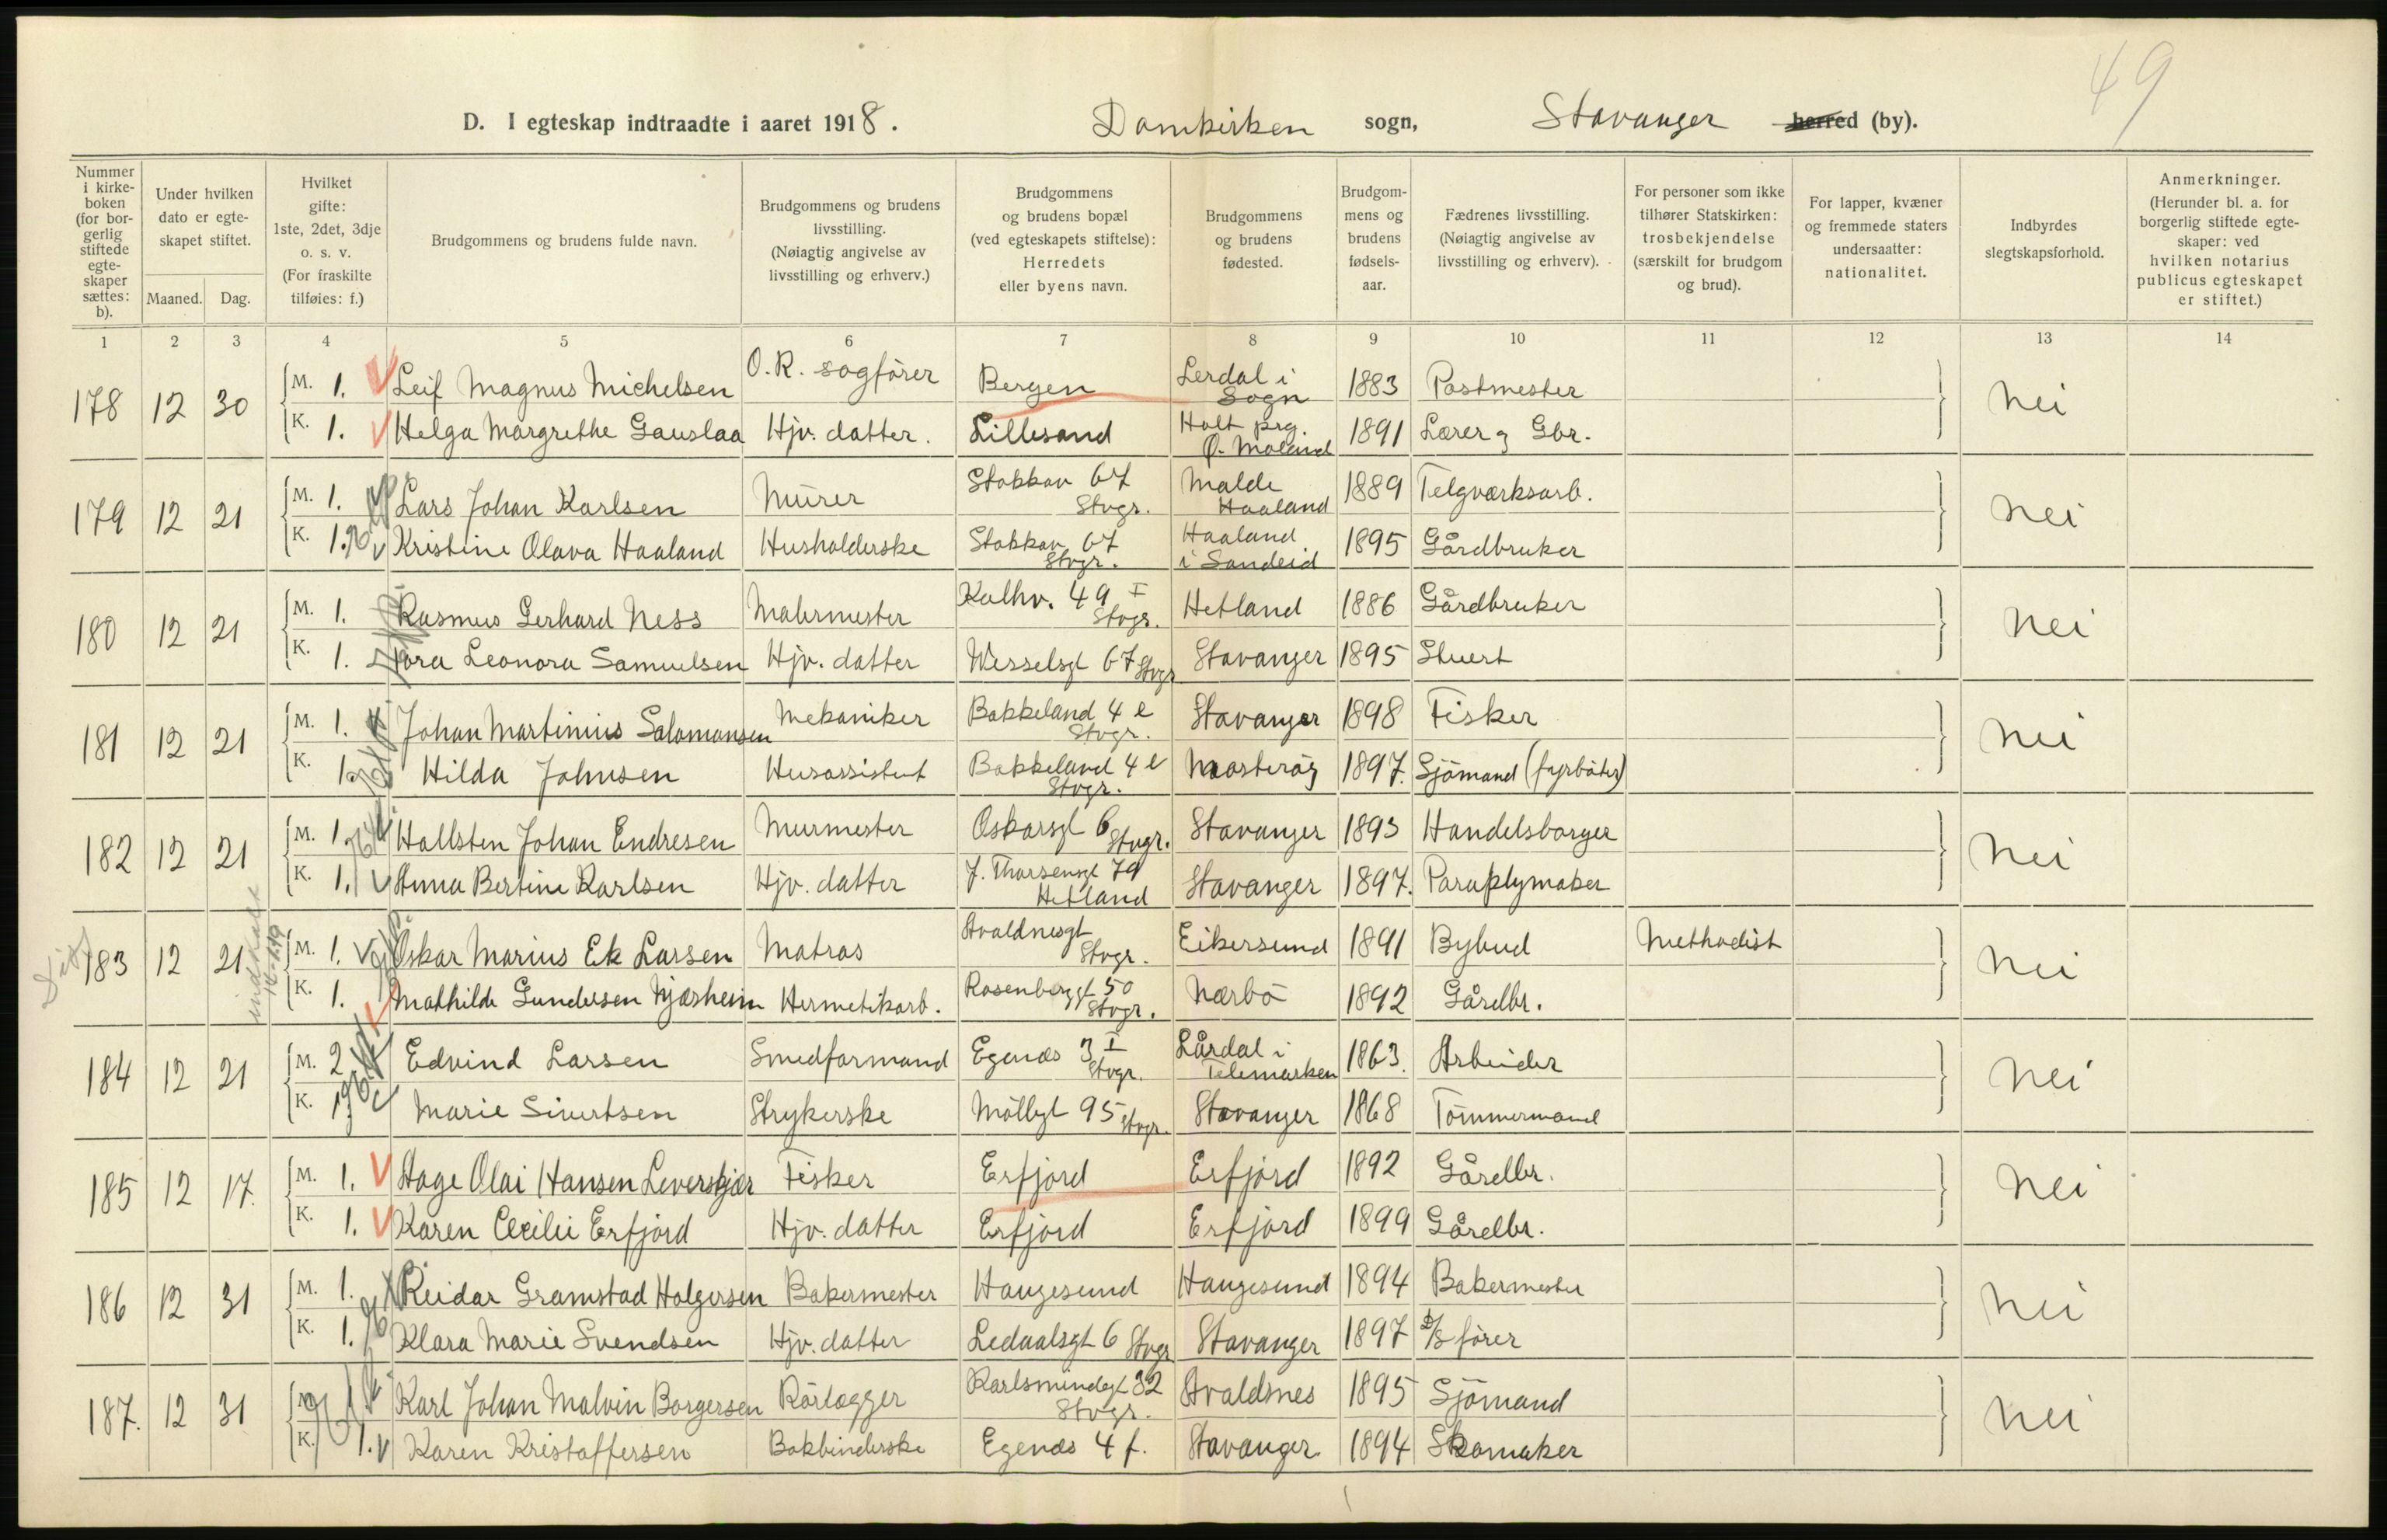 49
D. I egteskap indtraadte i aaret 1918. Domkirken sogn, Stavanger herred (by).
Nummer i kirkeboken (for borgerlig stiftede egteskaper sættes: b).
Under hvilken dato er egteskapet stiftet.
Maaned. Dag.
Hvilket gifte: 1ste, 2det, 3dje o. s. v. (For fraskilte tilføies: f.)
Brudgommens og brudens fulde navn.
Brudgommens og brudens livsstilling. (Nøiagtig angivelse av livsstilling og erhverv.)
Brudgommens og brudens bopæl (ved egteskapets stiftelse): Herredets eller byens navn.
Brudgommens og brudens fødested.
Brudgommens og brudens fødselsaar.
Fædrenes livsstilling. (Nøiagtig angivelse av livsstilling og erhverv).
For personer som ikke tilhører Statskirken: trosbekjendelse (særskilt for brudgom og brud).
For lapper, kvæner og fremmede staters undersaatter: nationalitet.
Indbyrdes slegtskapsforhold.
Anmerkninger. (Herunder bl. a. for borgerlig stiftede egteskaper: ved hvilken notarius publicus egteskapet er stiftet.)
1 2 3 4 5 6 7 8 9 10 11 12 13 14
178 12 30 M. 1. Leif Magnus Michelsen O.R. sagfører Bergen Lerdal i Sogn 1883 Postmester Nei
K. 1. Helga Margrethe Gauslaa Hjv. datter. Lillesand Holt prg. Ø. Moland 1891 Lærer og Gbr.
179 12 21 M. 1. Lars Johan Karlsen Murer Stokkav 67 Stvgr. Malde Haaland 1889 Telgværksarb. Nei
K. 1. Kristine Olava Haaland Husholderske Stokkav 67 Stvgr. Haaland i Sandeid 1895 Gårdbruker
180 12 21 M. 1. Rasmus Gerhard Ness Malermester Kalhv. 49 I Stvgr. Hetland 1886 Gårdbruker Nei
K. 1. Tora Leonora Samuelsen Hjv. datter Wesselsgt 67 Stvgr Stavanger 1895 Stuert
181 12 21 M. 1. Johan Martinius Salomonsen Mekaniker Bakkeland 4 e Stvgr. Stavanger 1898 Fisker Nei
K. 1. Hilda Johnsen Husassistent Bakkeland 4 e Stvgr. Mosterøy 1897. Sjömand (fyrböter)
182 12 21 M. 1. Hallsten Johan Endresen Murmester Oskarsgt 6 Stvgr. Stavanger 1893 Handelsborger Nei
K. 1. Anna Bertine Karlsen Hjv. datter J. Thorsensgt 79 Hetland Stavanger 1897. Paraplymaker
183 12 21 M. 1. Oskar Marius Ek Larsen Matros Avaldnesgt Stvgr. Eikersund 1891 Bybud Methodist Nei
K. 1. Mathilde Gundersen Njærheim Hermetikarb. Rosenberggt 50 Stvgr. Nærbö 1892 Gårdbr.
184 12 21 M. 2 Edvind Larsen Smedformand Egenæs 3 I Stvgr. Lårdal i Telemarken 1863. Arbeider Nei
K. 1. Marie Sivertsen Strykerske Möllegt 95 Stvgr. Stavanger 1868 Tömmermand
185 12 17. M. 1. Aage Olai Hansen Leverskjær Fisker Erfjord Erfjord 1892 Gårdbr. Nei
K. 1. Karen Cecilie Erfjord Hjv. datter Erfjord Erfjord 1899 Gårdbr.
186 12 31 M. 1. Reidar Gramstad Holgersen Bakermester Haugesund Haugesund 1894 Bakermester Nei
K. 1. Klara Marie Svendsen Hjv. datter Ledaalsgt 6 Stvgr Stavanger 1897 D/S förer
187. 12 31 M. Karl Johan Malvin Borgersen Rörlægger Karlsmindegt 32 Stvgr. Avaldsnes 1895 Sjömand Nei
K. 1. Karen Kristoffersen Bokbinderske Egenæs 4 f. Stavanger 1894 Skomaker